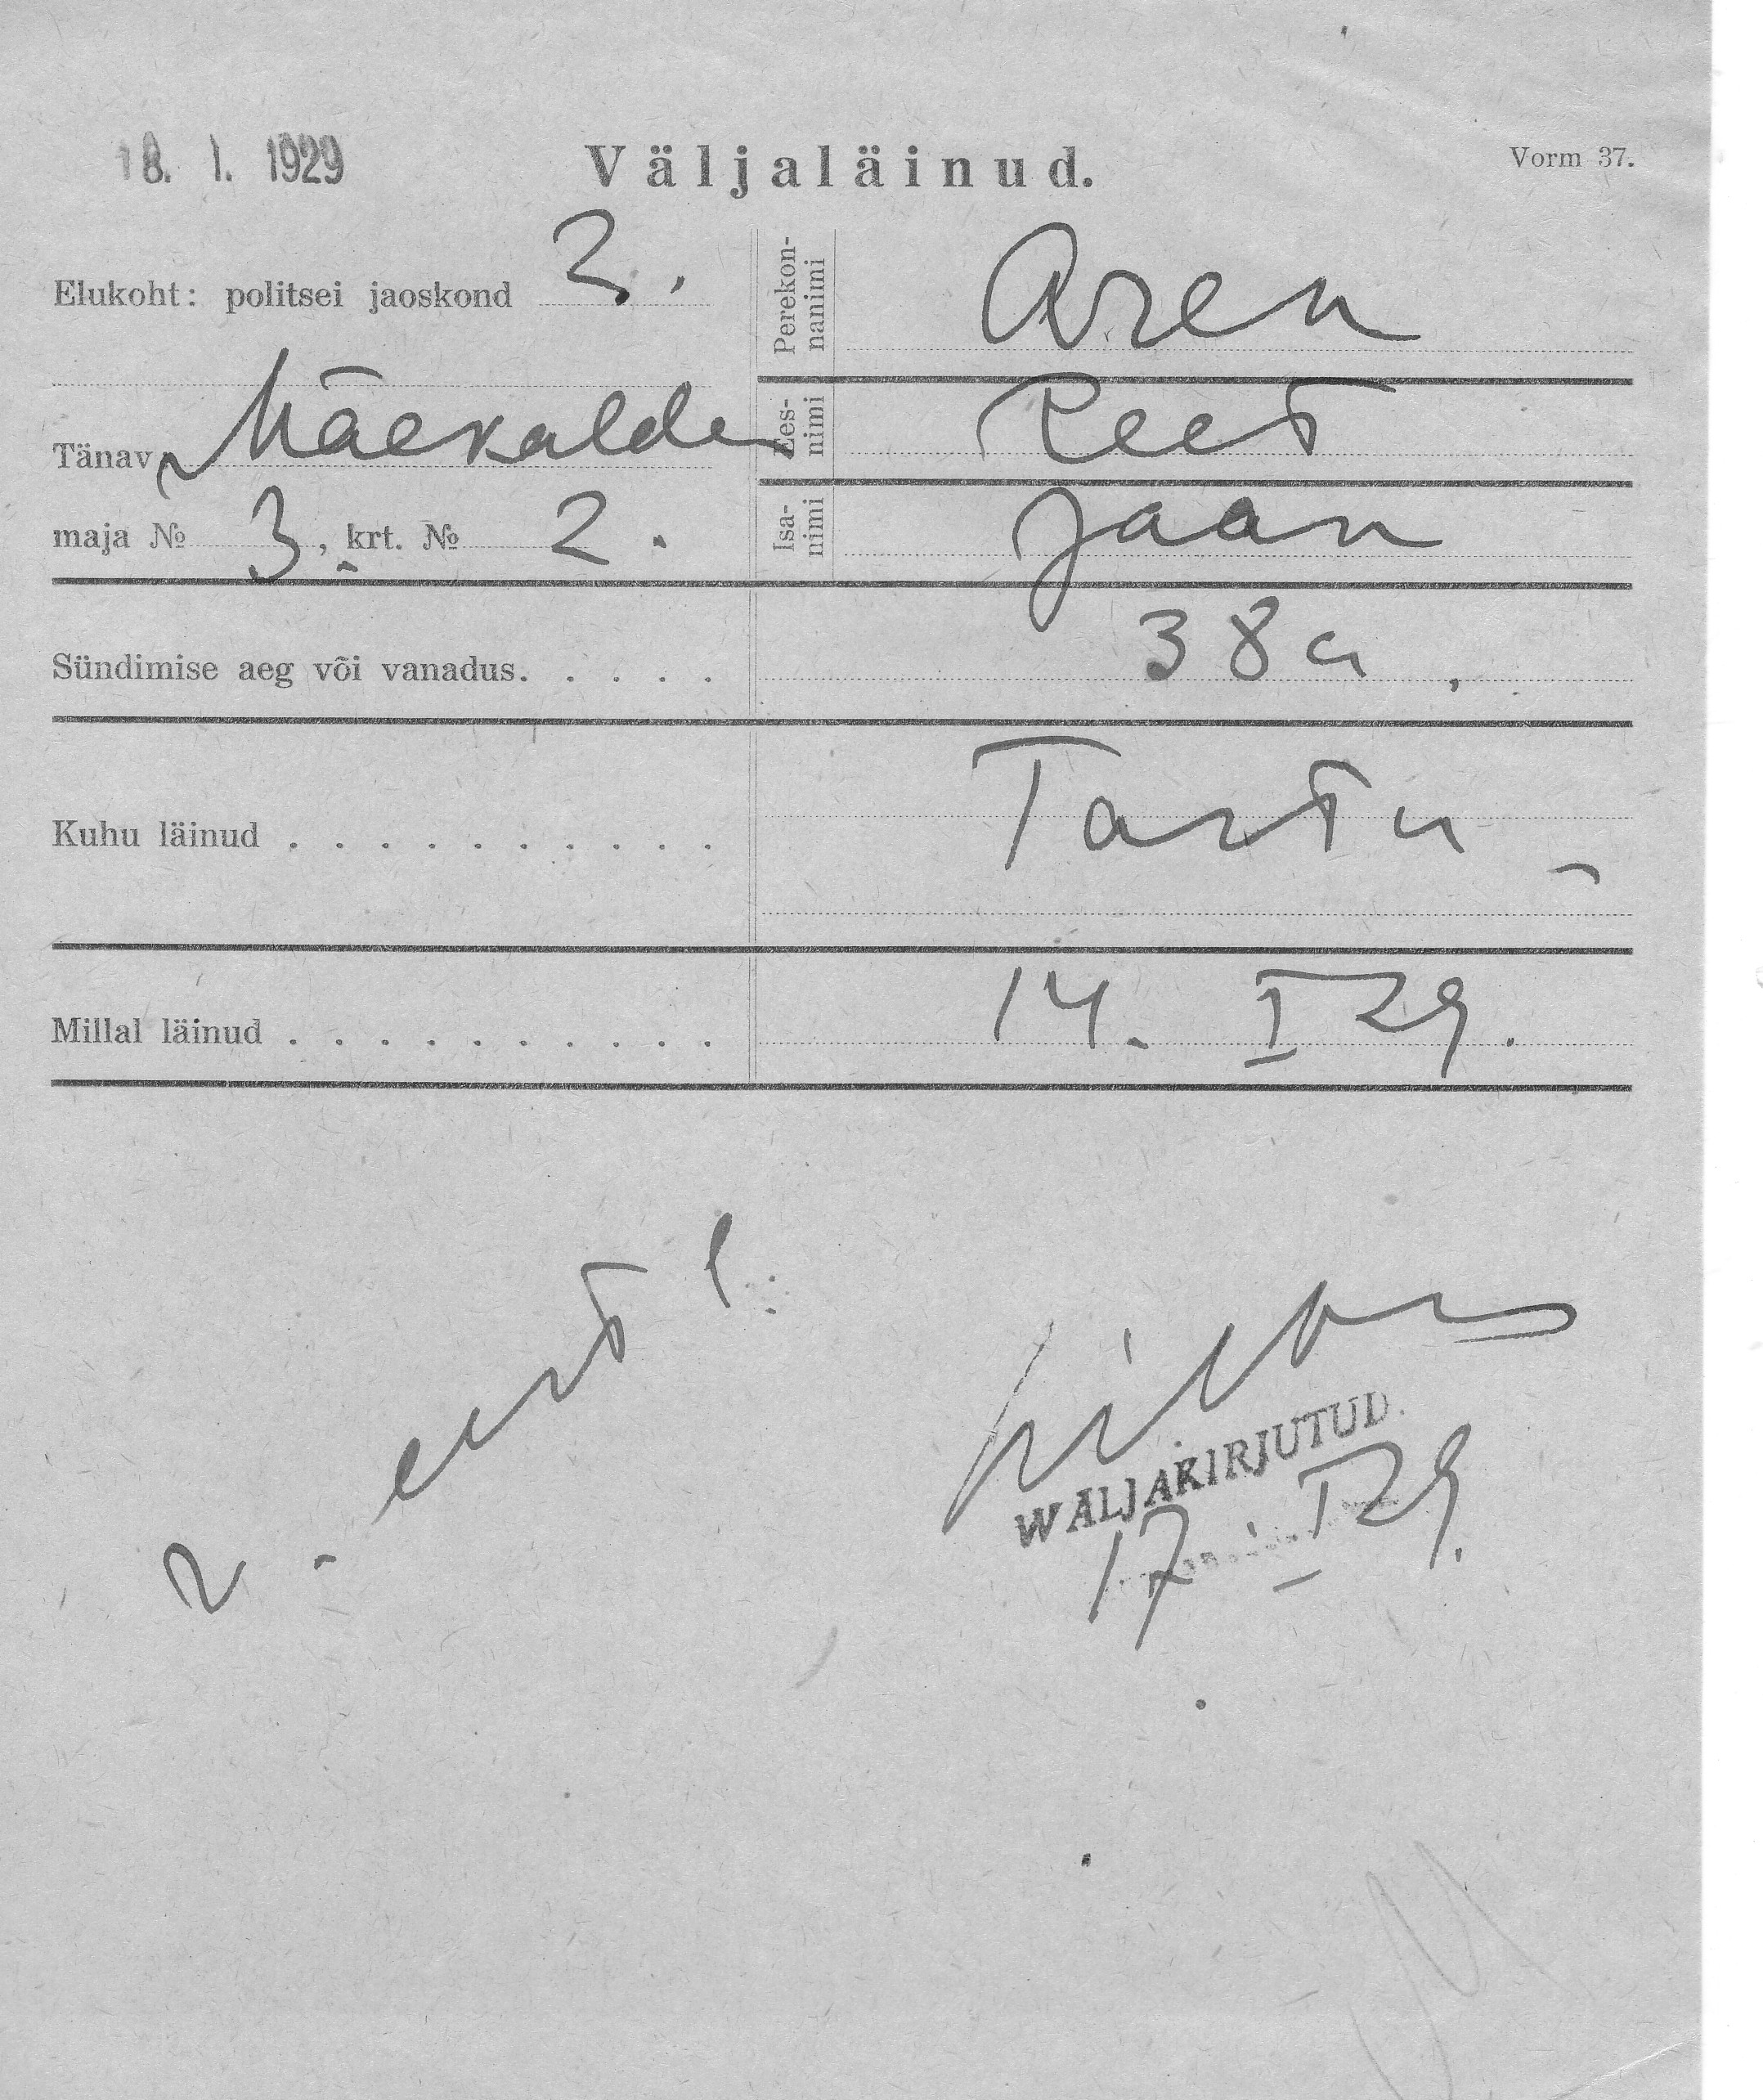 18. 1. 1929
Väljaläinud.
Vorm 37.
Elukoht: politsei jaoskond 2.
Tänav Mäekalda
maja № 3, krt. № 2.
Perekon-
nanimi
Aren
Ees-
nimi
Reet
Isa-
nimi
Jaan
Sündimise aeg või vanadus. . . . . 38 a.
Kuhu läinud . . . . . . . . . . Tartu
Millal läinud . . . . . . . . . . 14. I 29.
WÄLJAKIRJUTUD.
17. I 29.